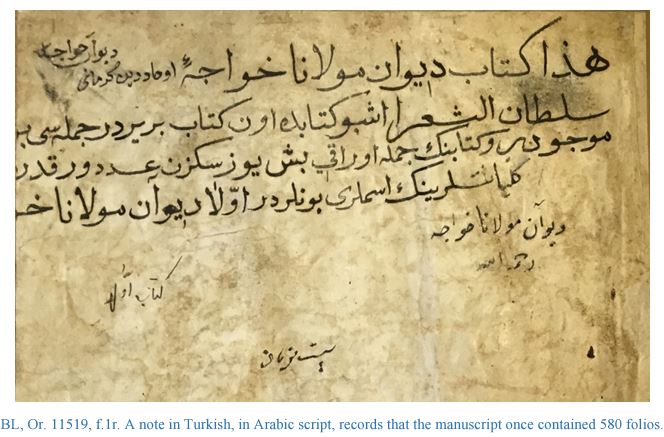 ديوان خواجه
اوحاددين كرمانى
هذا كتاب ديوان مولانا خواجهٔ
سلطان الشعرا اشبو كتابده اون كتاب بريردر جمله سى بر
موجوددر و كتابنك جمله اوراقى بش يوز سكزن عدددور قدر
كلياتلرينك اسملرى بونلردر اوّلا ديوان مولانا خو
ديوان مولانا خواجه
كتاب اوّل
BL, Or. 11519, f.1r. A note in Turkish, in Arabic script, records that the manuscript once contained 580 folios.